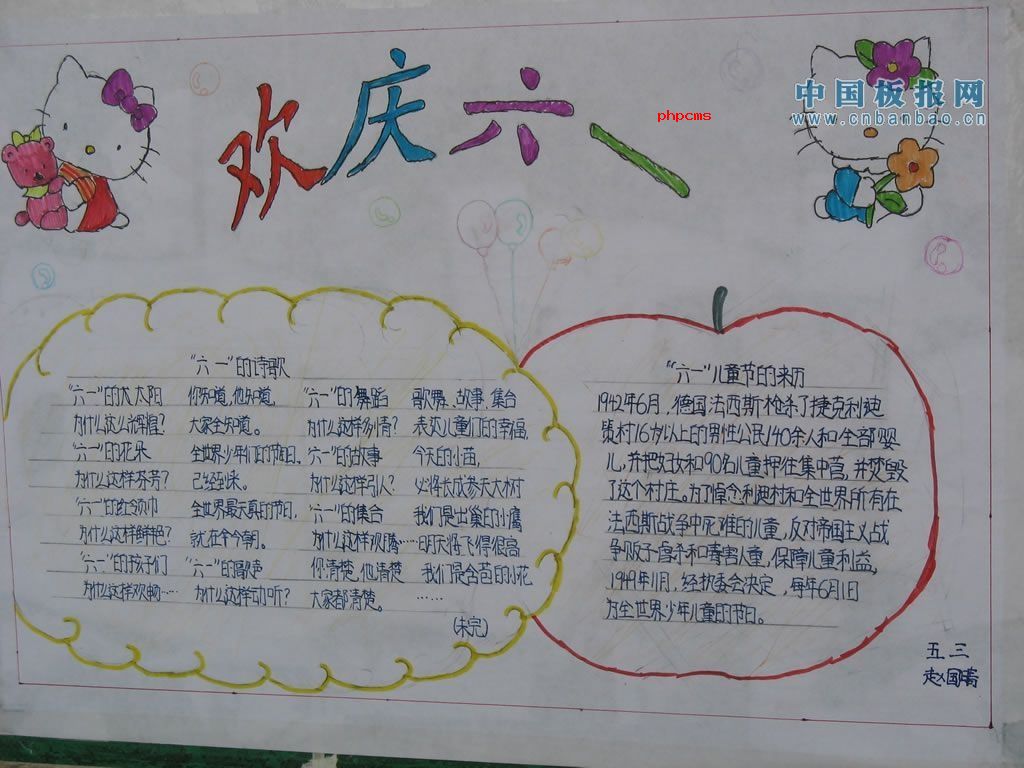 欢庆六一
phpcms
中国板报网
www.cnbanbao.cn
“六一”的诗歌
“六一”的大太阳
为什么这么辉煌?
“六一”的花朵
为什么这样芬芳?
“六一”的红领巾
为什么这样鲜艳?
“六一”的孩子们
为什么这样欢畅……
你知道,他知道,
大家全知道。
全世界少年们的节日,
已经到来。
全世界最天真的节日,
就在今今朝。
“六一”的
为什么这样动听?
“六一”的舞蹈
为什么这样多情?
“六一”的故事
为什么这样引人?
“六一”的集合
为什么这样欢腾……
你清楚,他清楚
大家都清楚。
歌舞、故事、集合
表达儿童们的幸福,
今天的小苗,
必将长成参天大树
我们是出巢的小鹰
明天将飞得很高
我们是含苞的小花
……
(未完)
“六一”儿童节的来历
1942年6月,德国法西斯枪杀了捷克利迪
策村16岁以上的男性公民140余人和全部婴
儿,并把妇女和90名儿童押往集中营,并焚毁
了这个村庄。为了悼念利迪村和全世界所有在
法西斯战争中死难的儿童,反对帝国主义战
争贩子虐杀和毒害儿童,保障儿童利益,
1949年11月,经执委会决定,每年6月1日
为全世界少年儿童的节日。
五三
赵国晴